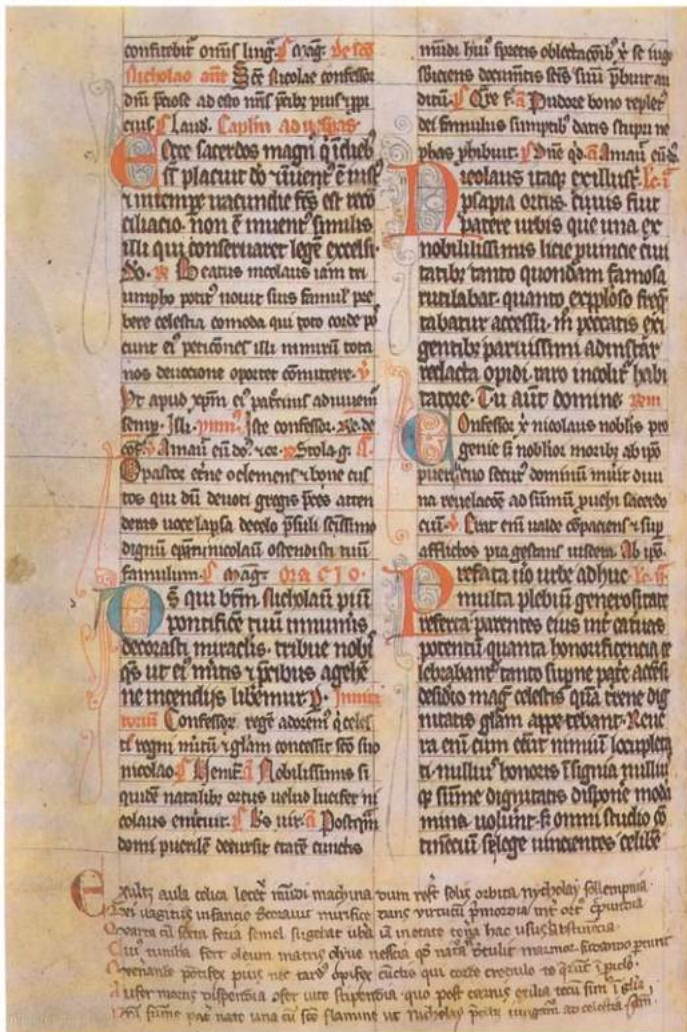 confitebit᷒ omīs ling̅. Mag̅. de sc̅o
Nicholao an̅t Sc̅e Nicolae confessor
dn̄i p̅ciose ad esto nr̄is p̅cib᷒ pius ⁊ p̅pi
cius. Laud. Capl̅m ad ṽs̅pas
Ecce sacerdos magn᷒ q̇ ī dieb᷒
su᷒ placuit do̅ ⁊ īuent᷒ ē iust᷒
⁊ in tempe iracundie fc̅s est reco̅
ciliacio. non ē inuent᷒ similis
illi qui conseruaret legē excelsi.
Do̅. ℞ Beatus nicolaus iam tri
umpho potit᷒ nouit suis famul᷒ pre
bere celestia comoda qui toto corde pos
cunt ei᷒ peticōnes illi nimirū tota
nos deuocione oportet cōmittere. ℣
Vt apud xp̅m ei᷒ pat̅ciniis adiuuem᷒
semp̲. Illi. ymn᷒. Iste confessor. ℞ de
cōf. ℣ Amauit eū do᷒. ⁊ or. Stola g̅.
O pastor et̅ne o clemens ⁊ bone cus
tos qui dū deuoti gregis p̅ces atten
deras uoce lapsa de celo p̅suli sc̅issimo
dignū ep̅atu nicolaū ostendisti tuū
famulum. Mag̅. oracio.
Ds̅ qui bt̅m Nicholaū piū
pontificē tuū innumis
decorasti miraclis. tribue nob᷒
q̅s ut ei᷒ mi̅tis ⁊ p̅cibus a gehē
ne incendijs libem̅ur. p̲. Inuita
toriū Confessor᷒ regē adorem᷒ q̇ celes
ti regni mi̅tū ⁊ gl̅am concessit sc̅o suo
nicolao. Venite. Nobilissimis si
quidē natalib᷒ ortus uelud lucifer ni
colaus emicuit. Bs̅ uir. a̅ Postq̅m
domi puerilē decursit etatē cunctis
mūdi hui᷒ spretis oblectacōib᷒ xp̅i se iugo
sb̅iciens documētis sc̅is sui p̅buit au
ditū. Qre f. a̅ Pudore bono replet᷒
dei famulus sumptib᷒ datis stupri ne
phas p̅hibuit. Dn̅e q̇d. a̅ Amauit eū d̅.
Nicolaus itaq᷒ ex illustri Lc̅. i̅
p̅sapia ortus. cuius fuit
patere urbis que una ex
nobilissimis licie p̅uincie ciui
tatib᷒ tanto quondam famosa
rutilabat. quanto explōso freq̅
tabatur accessu. ni pccatis exi
gentib᷒ paruissimi ad instar
redacta opidi. raro incolit᷒ habi
tatore. Tu aut̅ domine. ℞m
Confessor xp̅i nicolaus nobilis pro
genie s̅ nobilior morib᷒ ab ip̅o
pueri euo secut᷒ dominū m̅uit diui
na reuelacōe ad sūmū puehi sacerdo
ciū. ℣ Erat enī ualde cōpaciens ⁊ sup̲
afflictos pia gestans uiscera. Ab ip̅o.
Prefata uo̊ urbe adhuc Lc̅. ij̅
multa plebiū generositate
referta parentes eius int̅ cat̅uas
potentū quanta honorificencia ce
lebrabant᷒ tanto sup̅ne pat̅e accesi
desidio mag᷒ celestis quā t̅rene dig
nitatis gl̅am appetebant. Reue
ra enī cum ee̅nt nimiū locupleta
ti. nulli᷒ honoris ī signia nulli᷒
q᷒ sūme dignitatis dispone moda
mina uolunt. s̅ omni studio cō
tinencium se lege uincientes celibē
Exultet aula celica letet᷒ mūdi machina dum refert solis orbita nycholay sollempnia
Cui uagitus infancio decorauit mirifice dans virtutū p̅mordia int̅ ort᷒ crepundia
Quarta cū sexta feria semel sugebat ubera in etate tenera hac usus abstinēcia
Cui᷒ tumba fert oleum matris oliue nescia q̇d nat̅a nō p̅tulit marmor sudando p̅turit
Venerande pōtifex pius nec tard᷒ opifex cūctis qui corde credulo te querūt ī p̅iclo.
Aufer mortis dispendia ofer uite stipendia. quo post carnis exilia tecū sim᷒ ī gl̅ia.
Pr̅i sūme pat̅ nate una cū sc̅o flamine ut Nicholay p̅cib᷒ iungam᷒ celi ciuib᷒. amen.